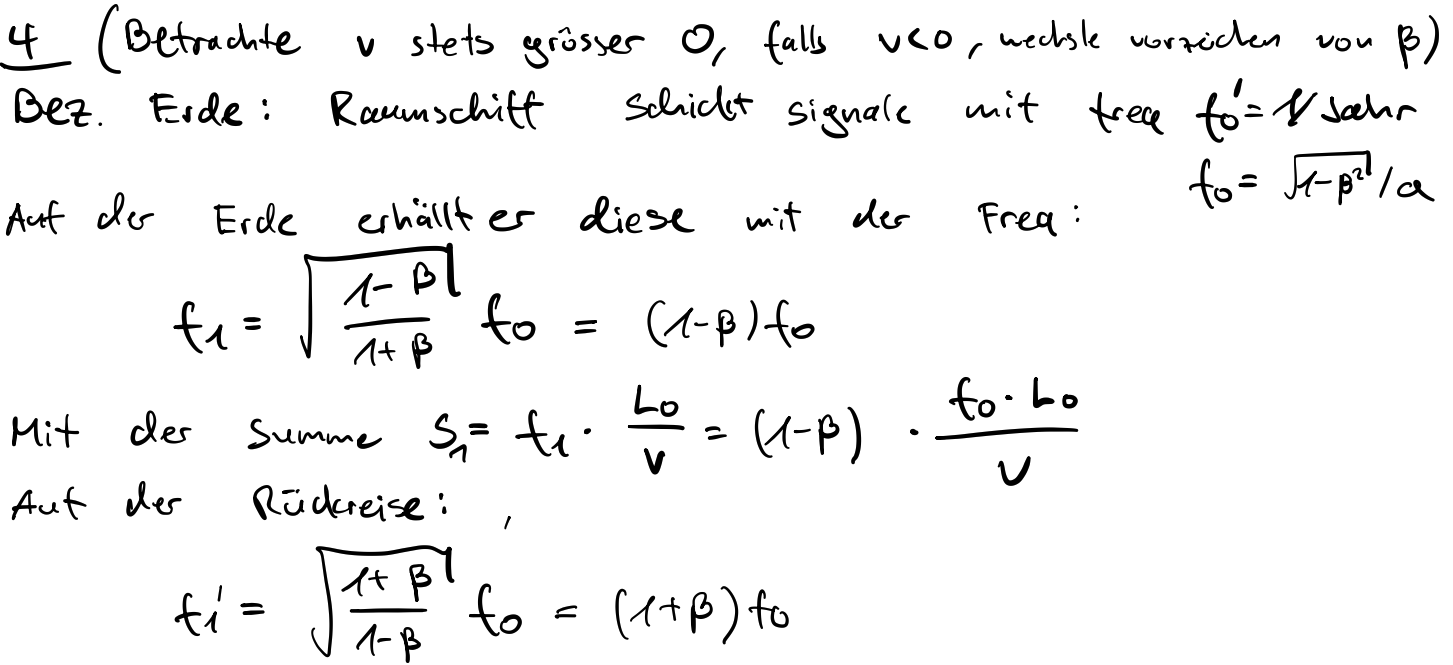 4 (Betrachte v stets grösser 0, falls v<0, wechsle vorzeichen von β)
Bez. Erde: Raumschiff schickt signale mit freq f₀' = 1/Jahr
f₀ = √(1-β²)/a
Auf der Erde erhällt er diese mit der Freq:
f₁ = √((1-β)/(1+β)) f₀ = (1-β)f₀
Mit der Summe S₁ = f₁ · L₀/v = (1-β) · (f₀·L₀)/v
Auf der Rückreise:
f₁' = √((1+β)/(1-β)) f₀ = (1+β)f₀